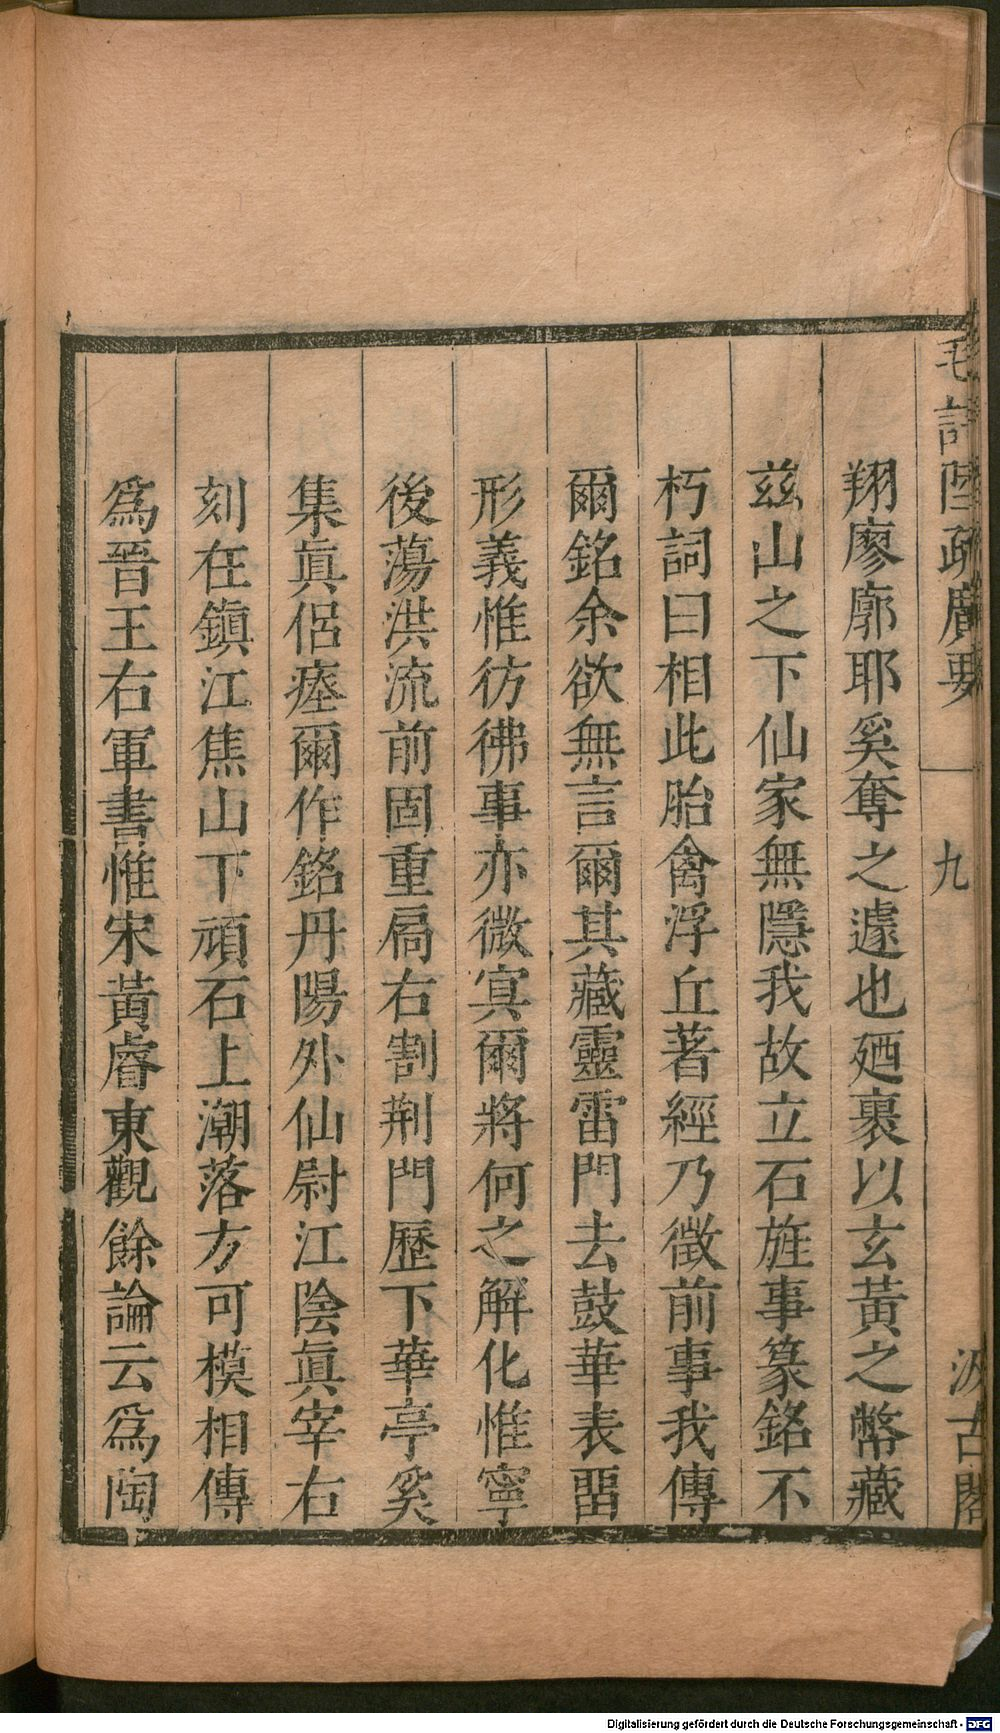 毛詩陸疏廣要 九 汲古閣
翔廖廓耶奚奪之遽也廼裹以玄黃之幣藏
兹山之下仙家無隱我故立石旌事篆銘不
朽詞曰相此胎禽浮丘著經乃徵前事我傳
爾銘余欲無言爾其藏靈雷門去鼓華表畱
形義惟彷彿事亦微寞爾將何之解化惟寧
後蕩洪流前固重扃右割荆門歷下華亭奚
集眞侶瘞爾作銘丹陽外仙尉江陰眞宰右
刻在鎭江焦山下頑石上潮落方可模相傳
爲晉王右軍書惟宋黃睿東觀餘論云爲陶
Digitalisierung gefördert durch die Deutsche Forschungsgemeinschaft - DFG